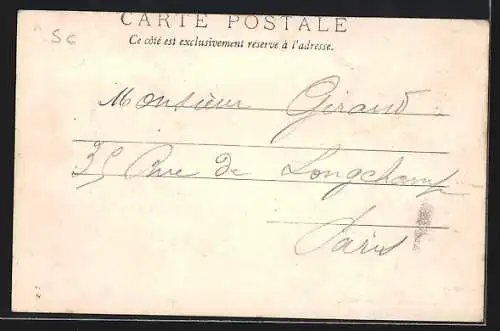 CARTE POSTALE
Ce côté est exclusivement réservé à l'adresse.
Monsieur Giraud
35 Rue de Longchamp
Paris